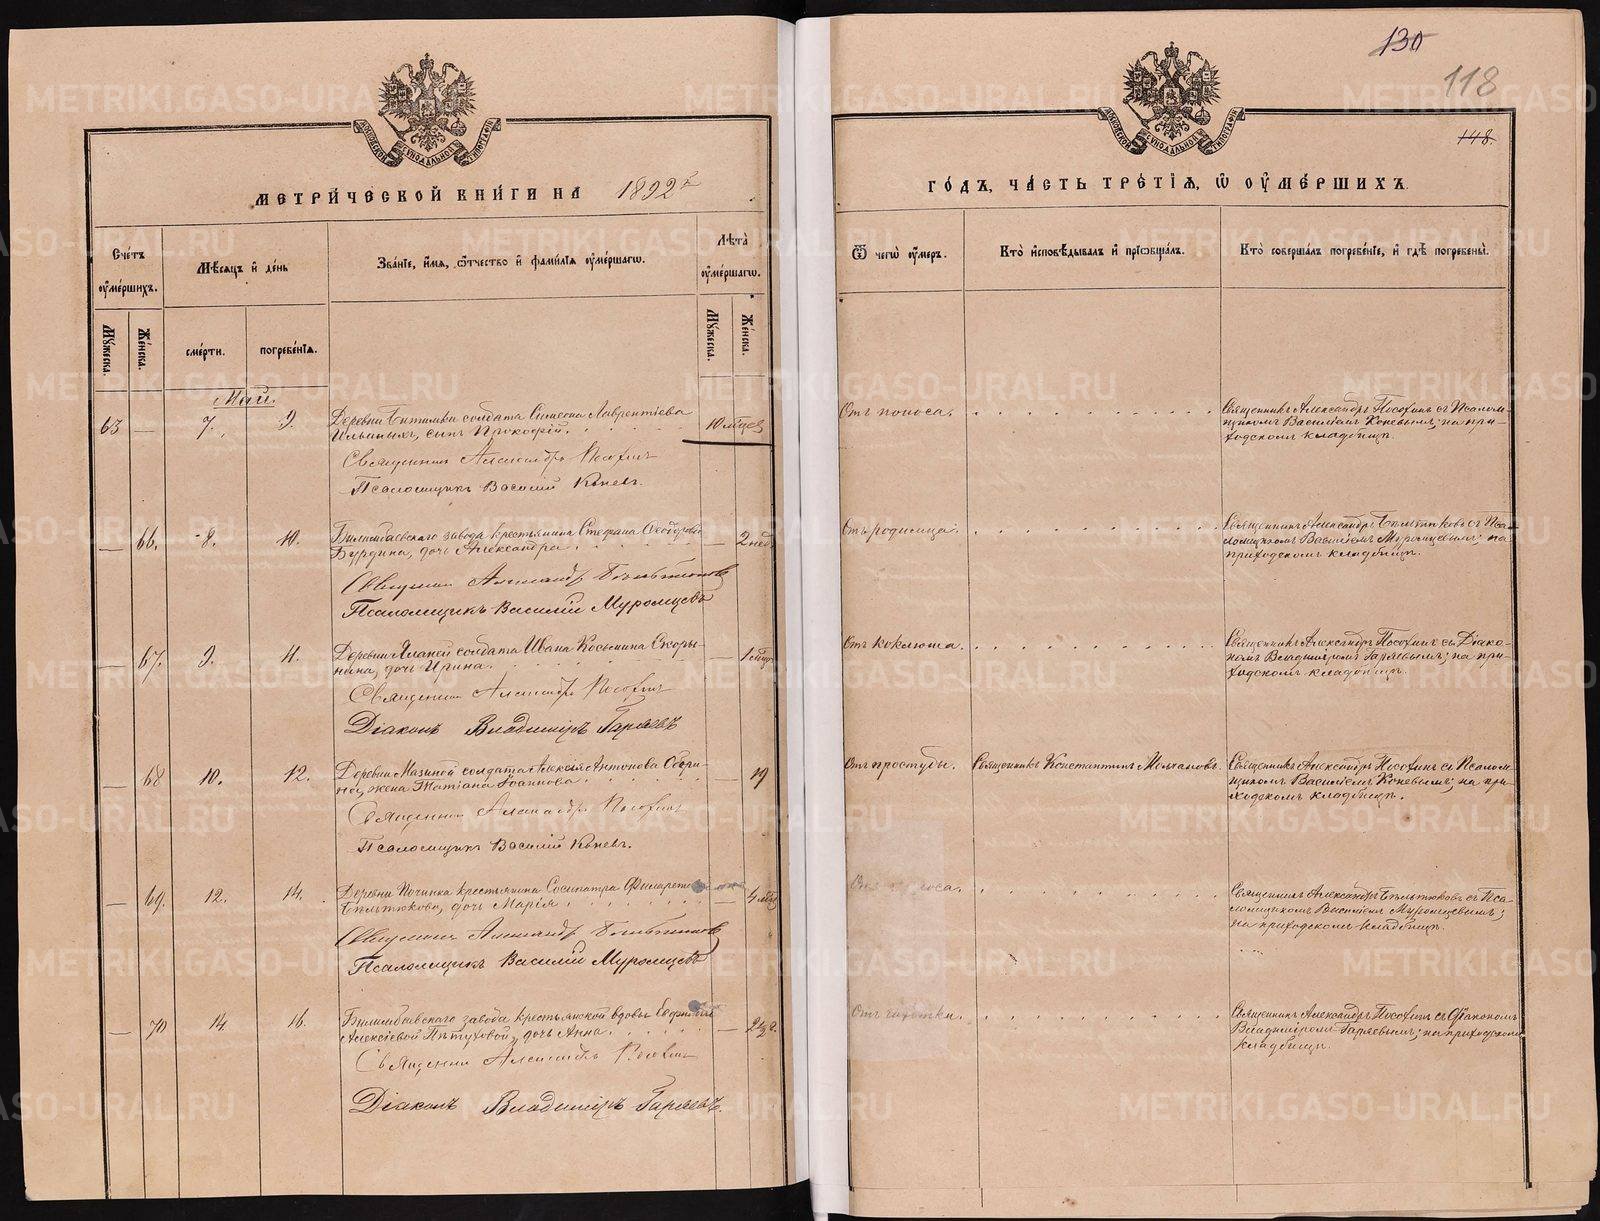 МЕТРИ́ЧЕСКОЙ КНИ́ГИ НА 1892 г
Сче́тъ
оу҆ме́ршихъ.
Мѣ́сяцъ и҆ де́нь
Зва́нїе, и҆́мѧ, ѻ҆́тчество и҆ фами́лїѧ оу҆ме́ршагѡ.
Лѣ́та
оу҆ме́ршагѡ.
Мꙋ́жеска.
Же́нска.
сме́рти.
погребе́нїѧ.
Мꙋ́жеска.
Же́нска.
Май.
63 — 7. 9. Деревни Битимки солдата Симеона Лаврентіева
Ильиныхъ, сынъ Прокофій. 10 мѣцев
Священникъ Александръ Посохинъ
Псаломщикъ Василій Коневъ.
— 66. 8. 10. Билимбаевскаго завода крестьянина Стефана Ѳеодорова
Бурдина, дочь Александра. — 2 нед.
Священникъ Александръ
Псаломщикъ Василій Муромцевъ
— 67. 9. 11. Деревни солдата Ивана Косьмина Скоры-
нина, дочь Ирина. — 1 мѣц.
Священникъ Александръ Посохинъ
Діаконъ Владиміръ Гаряевъ
— 68 10. 12. Деревни Мазиной солдата Алексія Антонова
жена Татіана Іоаннова. — 19
Священникъ Александръ Посохинъ
Псаломщикъ Василій Коневъ.
— 69. 12. 14. Деревни Починка крестьянина Сосипатра
дочь Марія. — 4
Священникъ Александръ
Псаломщикъ Василій Муромцевъ
— 70 14 16. Билимбаевскаго завода крестьянской вдовы
Алексіевой Пѣтуховой, дочь Анна. — 2
Священникъ Александръ Посохинъ
Діаконъ Владиміръ Гаряевъ.
130
118
148.
ГО́ДЪ, ЧА́СТЬ ТРЕ́ТЇѦ, Ѡ҆ ОУ҆МЕ́РШИХЪ.
Ѿ чегѡ̀ оу҆́меръ.
Кто̀ и҆сповѣ́дывалъ и҆ прїѡбща́лъ.
Кто̀ соверша́лъ погребе́нїе, и҆ гдѣ̀ погребены̀.
Отъ поноса. Священникъ Александръ Посохинъ съ Псалом-
щикомъ Василіемъ Коневымъ; на при-
ходскомъ кладбищѣ.
Отъ родимца. Священникъ Александръ съ Пса-
ломщикомъ Василіемъ Муромцевымъ; на
приходскомъ кладбищѣ.
Отъ коклюша. Священникъ Александръ Посохинъ съ Діако-
номъ Владиміромъ Гаряевымъ; на при-
ходскомъ кладбищѣ.
Отъ простуды. Священникъ Константинъ Молчановъ. Священникъ Александръ Посохинъ съ Псалом-
щикомъ Василіемъ Коневымъ; на при-
ходскомъ кладбищѣ.
Отъ поноса. Священникъ Александръ съ Пса-
ломщикомъ Василіемъ Муромцевымъ;
на приходскомъ кладбищѣ.
Отъ чахотки. Священникъ Александръ Посохинъ съ Діакономъ
Владиміромъ Гаряевымъ; на приходскомъ
кладбищѣ.
METRIKI.GASO-URAL.RU